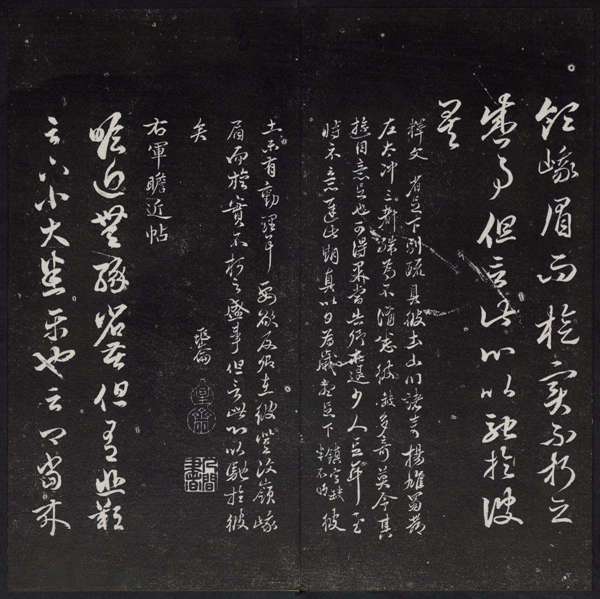 領峨眉而旋實不朽之
盛事但言此心以馳於彼
矣
釋文 省足下別疏具彼土山川諸奇揚雄蜀都
左太冲三都殊為不備悉彼故多奇益令其
遊目意足也可得果當告卿求迎少人足耳至
時示意遲此期真以日為歲想足下鎮字缺彼
土未有動理耳要欲及卿在彼登汶嶺峨
眉而旋實不朽之盛事但言此心以馳於彼
矣
右軍瞻近帖
瞻近無緣省苦但有悲歎
足下小大悉平安也云卿當來